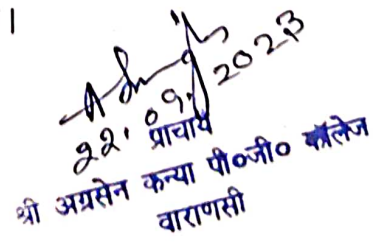 ।
22.09.2023
प्राचार्य
श्री अग्रसेन कन्या पी०जी० कॉलेज
वाराणसी